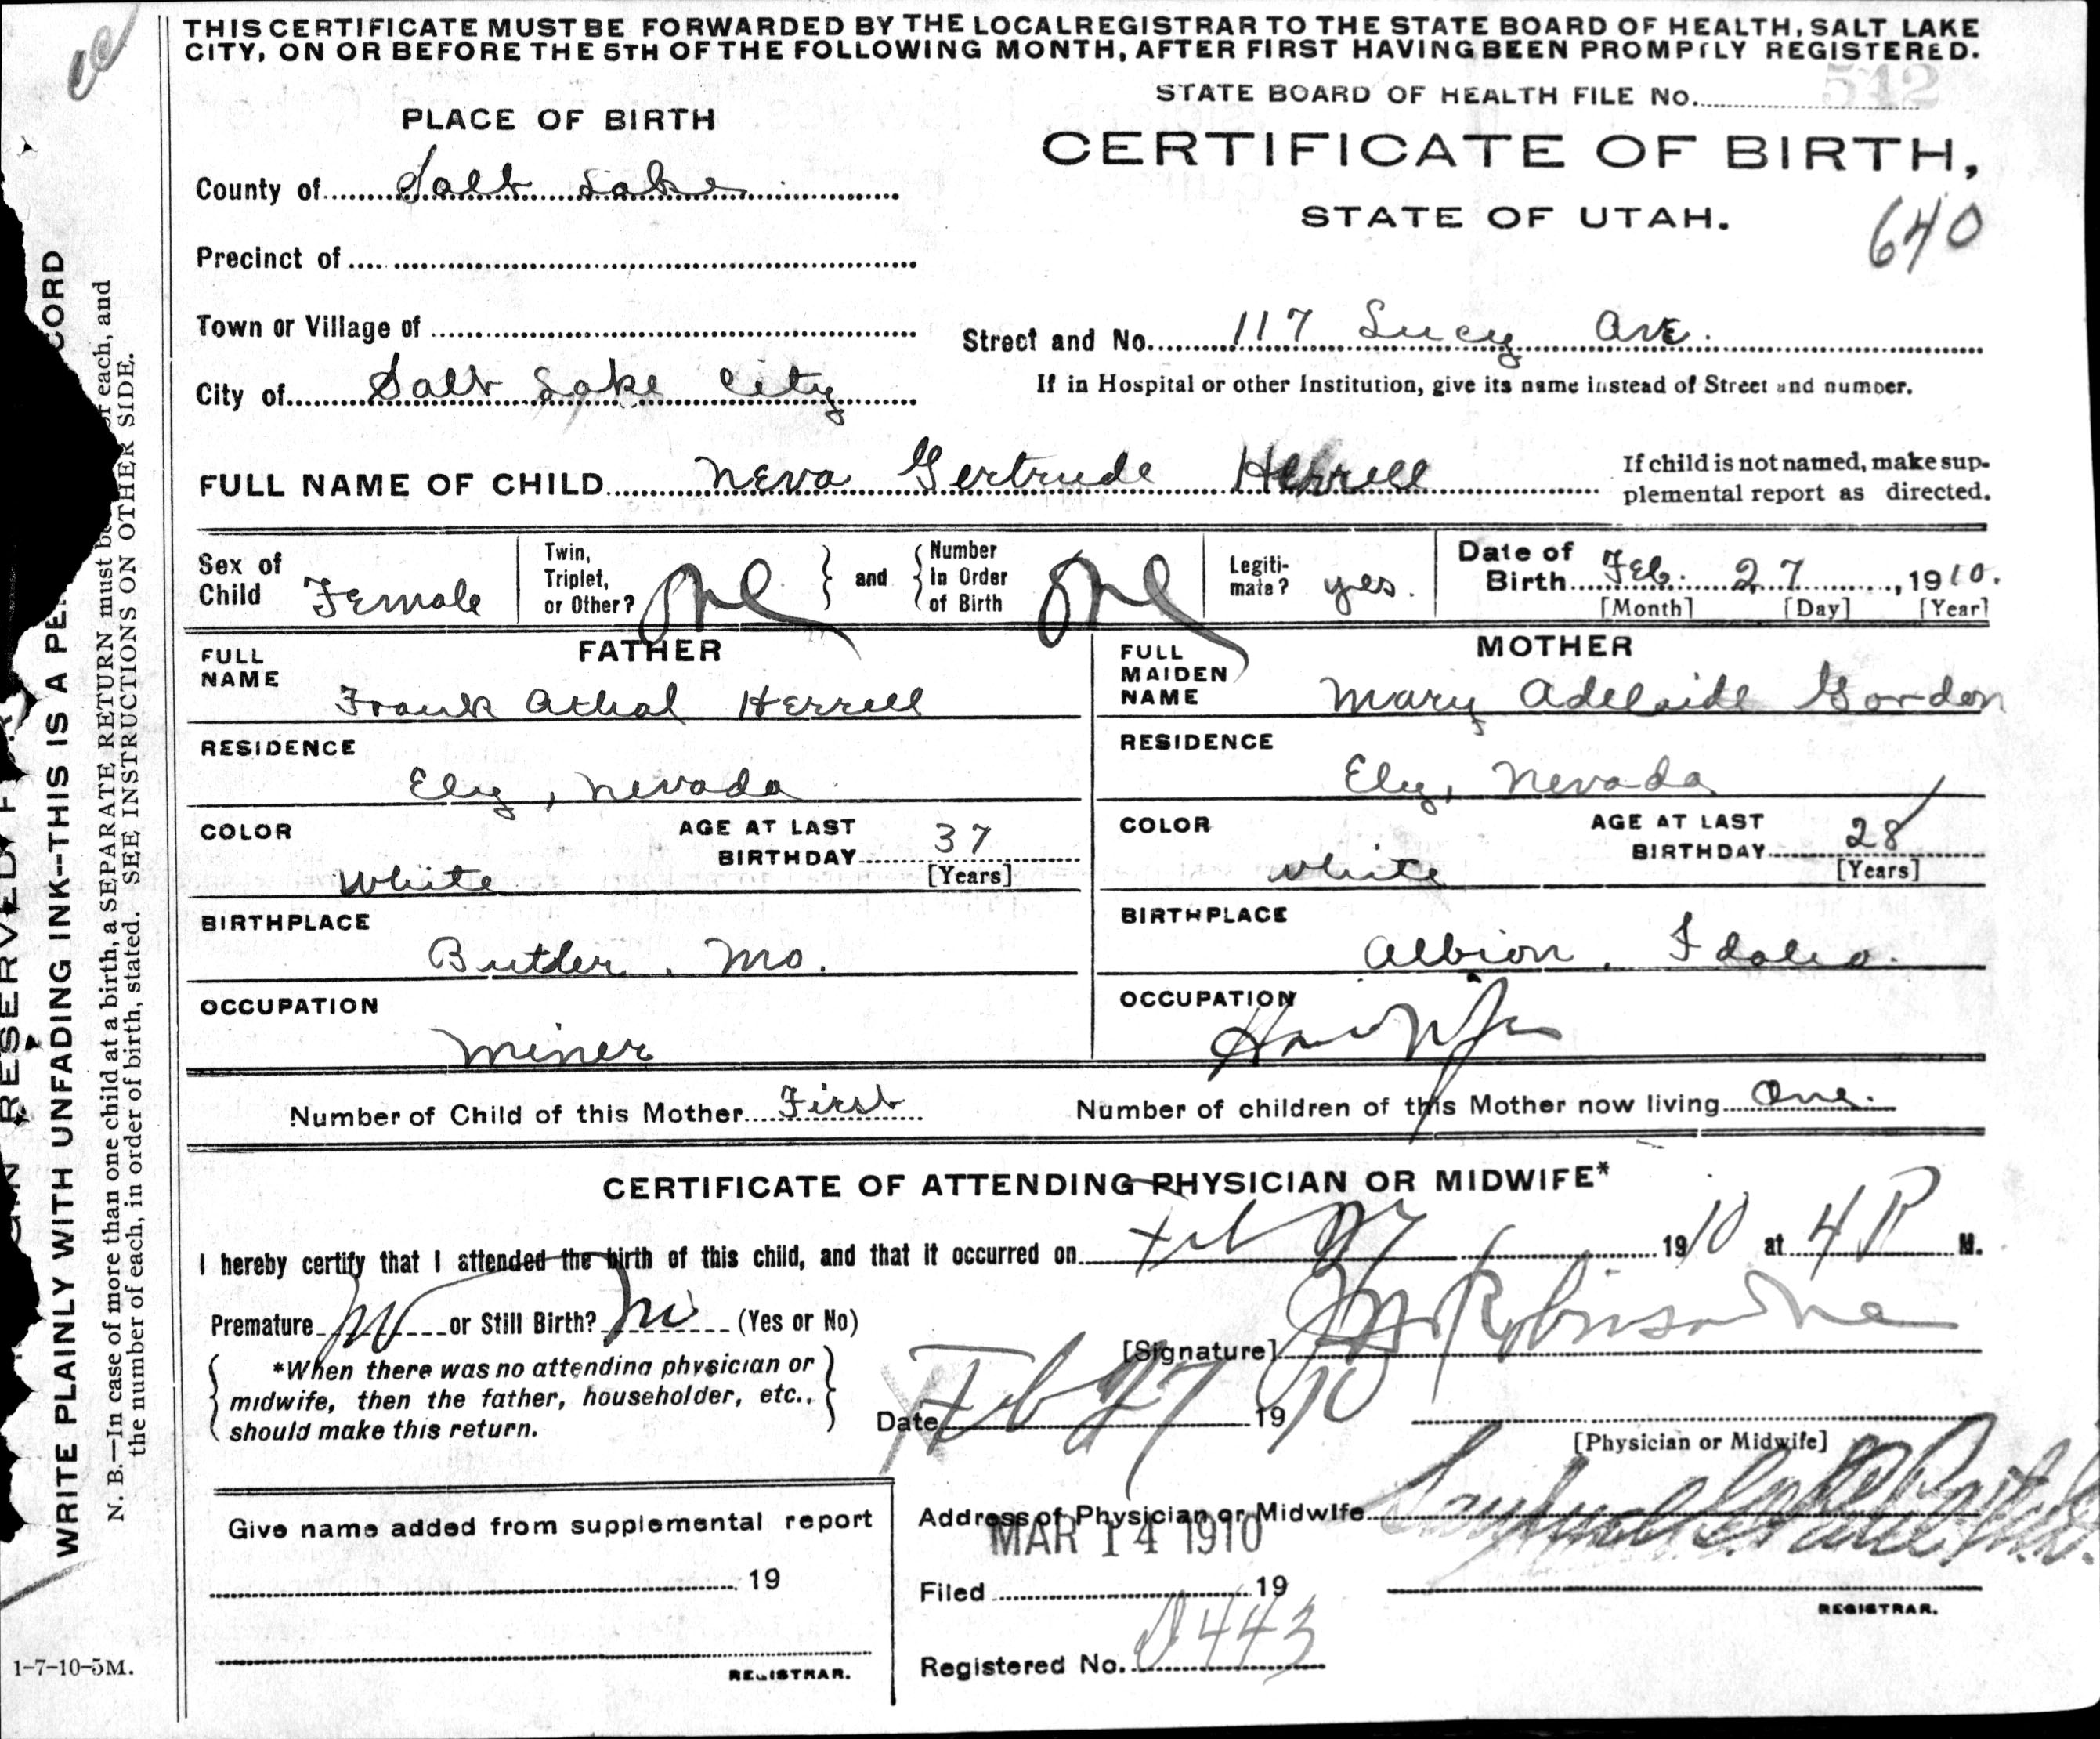 THIS CERTIFICATE MUST BE FORWARDED BY THE LOCAL REGISTRAR TO THE STATE BOARD OF HEALTH, SALT LAKE
CITY, ON OR BEFORE THE 5TH OF THE FOLLOWING MONTH, AFTER FIRST HAVING BEEN PROMPTLY REGISTERED.
STATE BOARD OF HEALTH FILE No. 542
PLACE OF BIRTH
CERTIFICATE OF BIRTH,
STATE OF UTAH.
640
County of Salt Lake
Precinct of
Town or Village of
Street and No. 117 Lucy Ave.
City of Salt Lake City
If in Hospital or other Institution, give its name instead of Street and number.
FULL NAME OF CHILD Neva Gertrude Herrell
If child is not named, make sup-
plemental report as directed.
Sex of Child Female
Twin, Triplet, or Other? One } and { Number in Order of Birth One
Legiti-mate? yes.
Date of Birth Feb. 27, 1910.
[Month] [Day] [Year]
FATHER
FULL NAME Frank Athol Herrell
RESIDENCE
Ely, Nevada
COLOR White
AGE AT LAST BIRTHDAY 37
[Years]
BIRTHPLACE
Butler, Mo.
OCCUPATION
Miner
MOTHER
FULL MAIDEN NAME Mary Adelaide Gordon
RESIDENCE
Ely, Nevada
COLOR White
AGE AT LAST BIRTHDAY 28
[Years]
BIRTHPLACE
Albion, Idaho.
OCCUPATION
Housewife
Number of Child of this Mother First
Number of children of this Mother now living One.
CERTIFICATE OF ATTENDING PHYSICIAN OR MIDWIFE*
I hereby certify that I attended the birth of this child, and that it occurred on Feb 27 1910 at 4 P M.
Premature No or Still Birth? No (Yes or No)
[Signature] Robinson
*When there was no attending physician or
midwife, then the father, householder, etc.,
should make this return.
Date Feb 27 1910
[Physician or Midwife]
Give name added from supplemental report
19
REGISTRAR.
Address of Physician or Midwife
MAR 14 1910
Filed 19
REGISTRAR.
Registered No. 443
WRITE PLAINLY WITH UNFADING INK--THIS IS A PE CORD
N. B.—In case of more than one child at a birth, a SEPARATE RETURN must be of each, and
the number of each, in order of birth, stated. SEE INSTRUCTIONS ON OTHER SIDE.
1-7-10-5M.